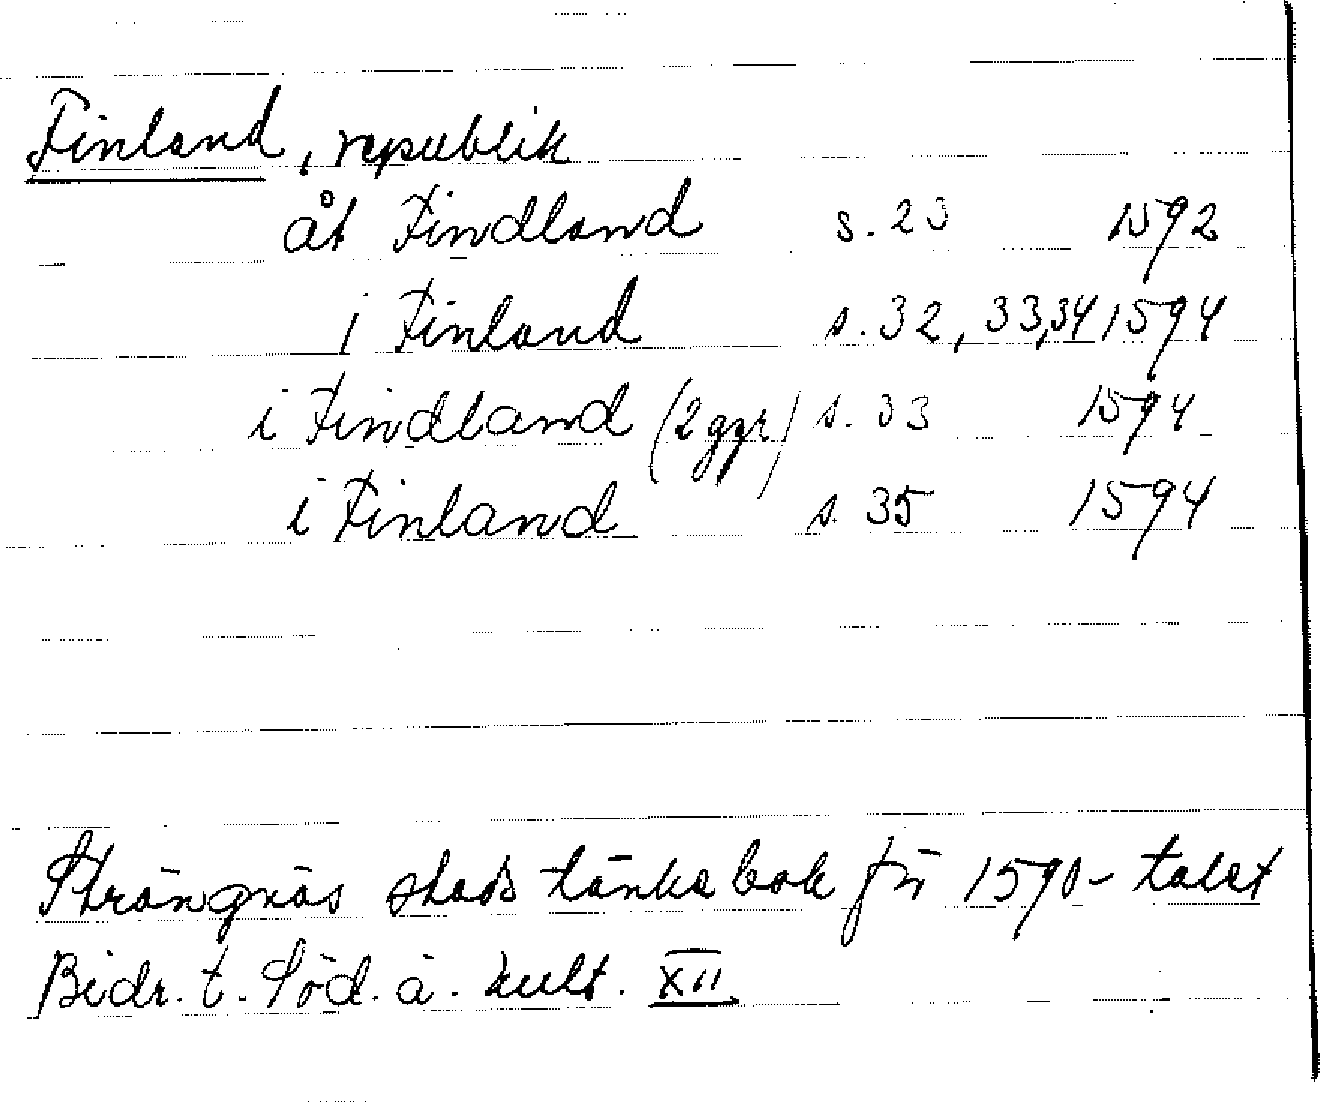 Finland, republik
åt Findland s. 23 1592
i Finland s. 32, 33, 34 1594
i Findland (2 ggr) s. 33 1594
i Finland s. 35 1594
Strängnäs stads tänkebok för 1590-talet
Bidr. t. Söd. ä. kult. XII